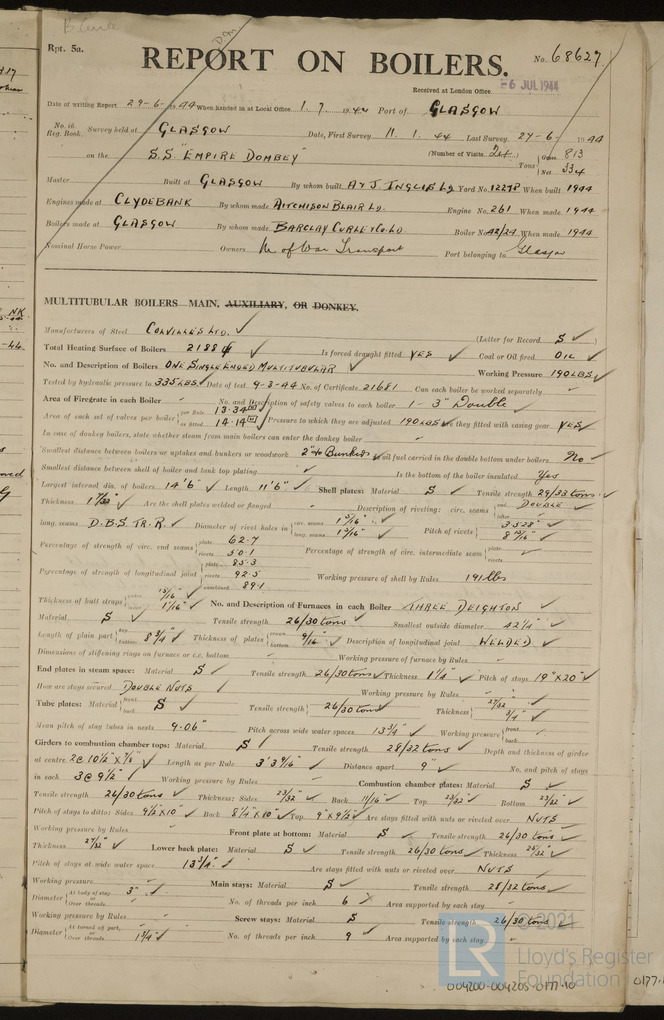 Rpt. 5a.
REPORT ON BOILERS.
No. 68627
Received at London Office 6 JUL 1944
Date of writing Report 29-6-1944 When handed in at Local Office 1.7.1944 Port of GLASGOW
No. in Reg. Book. Survey held at GLASGOW Date, First Survey 11.1.44 Last Survey 27-6-1944
on the S.S. "EMPIRE DOMBEY" (Number of Visits 24) Tons Gross 813 Net 334
Master Built at GLASGOW By whom built A & J. INGLIS Ld Yard No. 1227P When built 1944
Engines made at CLYDEBANK By whom made AITCHISON BLAIR LD. Engine No. 261 When made 1944
Boilers made at GLASGOW By whom made BARCLAY CURLE & CO. LD Boiler No. AB/24 When made 1944
Nominal Horse Power Owners M. of War Transport Port belonging to Glasgow
MULTITUBULAR BOILERS MAIN, AUXILIARY, OR DONKEY.
Manufacturers of Steel COLVILLES LTD. (Letter for Record S)
Total Heating Surface of Boilers 2188 Is forced draught fitted YES Coal or Oil fired OIL
No. and Description of Boilers ONE SINGLE ENDED MULTITUBULAR Working Pressure 190 LBS
Tested by hydraulic pressure to 335 LBS. Date of test 9-3-44 No. of Certificate 21681 Can each boiler be worked separately
Area of Firegrate in each Boiler No. and Description of safety valves to each boiler 1 - 3" Double
Area of each set of valves per boiler per Rule 13.34 as fitted 14.14 Pressure to which they are adjusted 190 LBS Are they fitted with easing gear YES
In case of donkey boilers, state whether steam from main boilers can enter the donkey boiler
Smallest distance between boilers or uptakes and bunkers or woodwork 2'-0 Bunkers Is oil fuel carried in the double bottom under boilers No
Smallest distance between shell of boiler and tank top plating Is the bottom of the boiler insulated Yes
Largest internal dia. of boilers 14'6" Length 11'6" Shell plates: Material S Tensile strength 29/33 tons.
Thickness 1 7/32" Are the shell plates welded or flanged Description of riveting: circ. seams end DOUBLE inter
long. seams D.B.S. TR. R. Diameter of rivet holes in circ. seams 1 5/16" long. seams 1 5/16" Pitch of rivets 3.528" 8 15/16"
Percentage of strength of circ. end seams plate 62.7 rivets 50.1 Percentage of strength of circ. intermediate seam plate rivets
Percentage of strength of longitudinal joint plate 85.3 rivets 92.5 combined 89.1 Working pressure of shell by Rules 191 lbs
Thickness of butt straps outer 15/16" inner 1 1/16" No. and Description of Furnaces in each Boiler THREE DEIGHTON
Material S Tensile strength 26/30 tons Smallest outside diameter 42 1/4"
Length of plain part top bottom 8 3/4" Thickness of plates crown bottom 9/16" Description of longitudinal joint WELDED
Dimensions of stiffening rings on furnace or c.c. bottom Working pressure of furnace by Rules
End plates in steam space: Material S Tensile strength 26/30 tons Thickness 1 1/4" Pitch of stays 19" x 20"
How are stays secured DOUBLE NUTS Working pressure by Rules
Tube plates: Material front back S Tensile strength 26/30 tons Thickness 27/32" 3/4"
Mean pitch of stay tubes in nests 9.06" Pitch across wide water spaces 13 3/4" Working pressure front back
Girders to combustion chamber tops: Material S Tensile strength 28/32 tons Depth and thickness of girder
at centre 2 @ 10 1/2" x 7/8" Length as per Rule 3' 3 9/16" Distance apart 9" No. and pitch of stays
in each 3 @ 9 1/2" Working pressure by Rules Combustion chamber plates: Material S
Tensile strength 26/30 tons Thickness: Sides 23/32" Back 11/16" Top 23/32" Bottom 27/32"
Pitch of stays to ditto: Sides 9 1/2" x 10" Back 8 1/4" x 10" Top 9" x 9 1/2" Are stays fitted with nuts or riveted over NUTS
Working pressure by Rules Front plate at bottom: Material S Tensile strength 26/30 tons
Thickness 27/32" Lower back plate: Material S Tensile strength 26/30 tons Thickness 25/32"
Pitch of stays at wide water space 13 3/4" Are stays fitted with nuts or riveted over NUTS
Working pressure Main stays: Material S Tensile strength 28/32 tons
Diameter At body of stay or Over threads 3" No. of threads per inch 6 Area supported by each stay
Working pressure by Rules Screw stays: Material S Tensile strength 26/30 tons
Diameter At turned off part, or Over threads 1 3/4" No. of threads per inch 9 Area supported by each stay
© 2021
LR Lloyd's Register
Foundation
004200-004205-0177-10